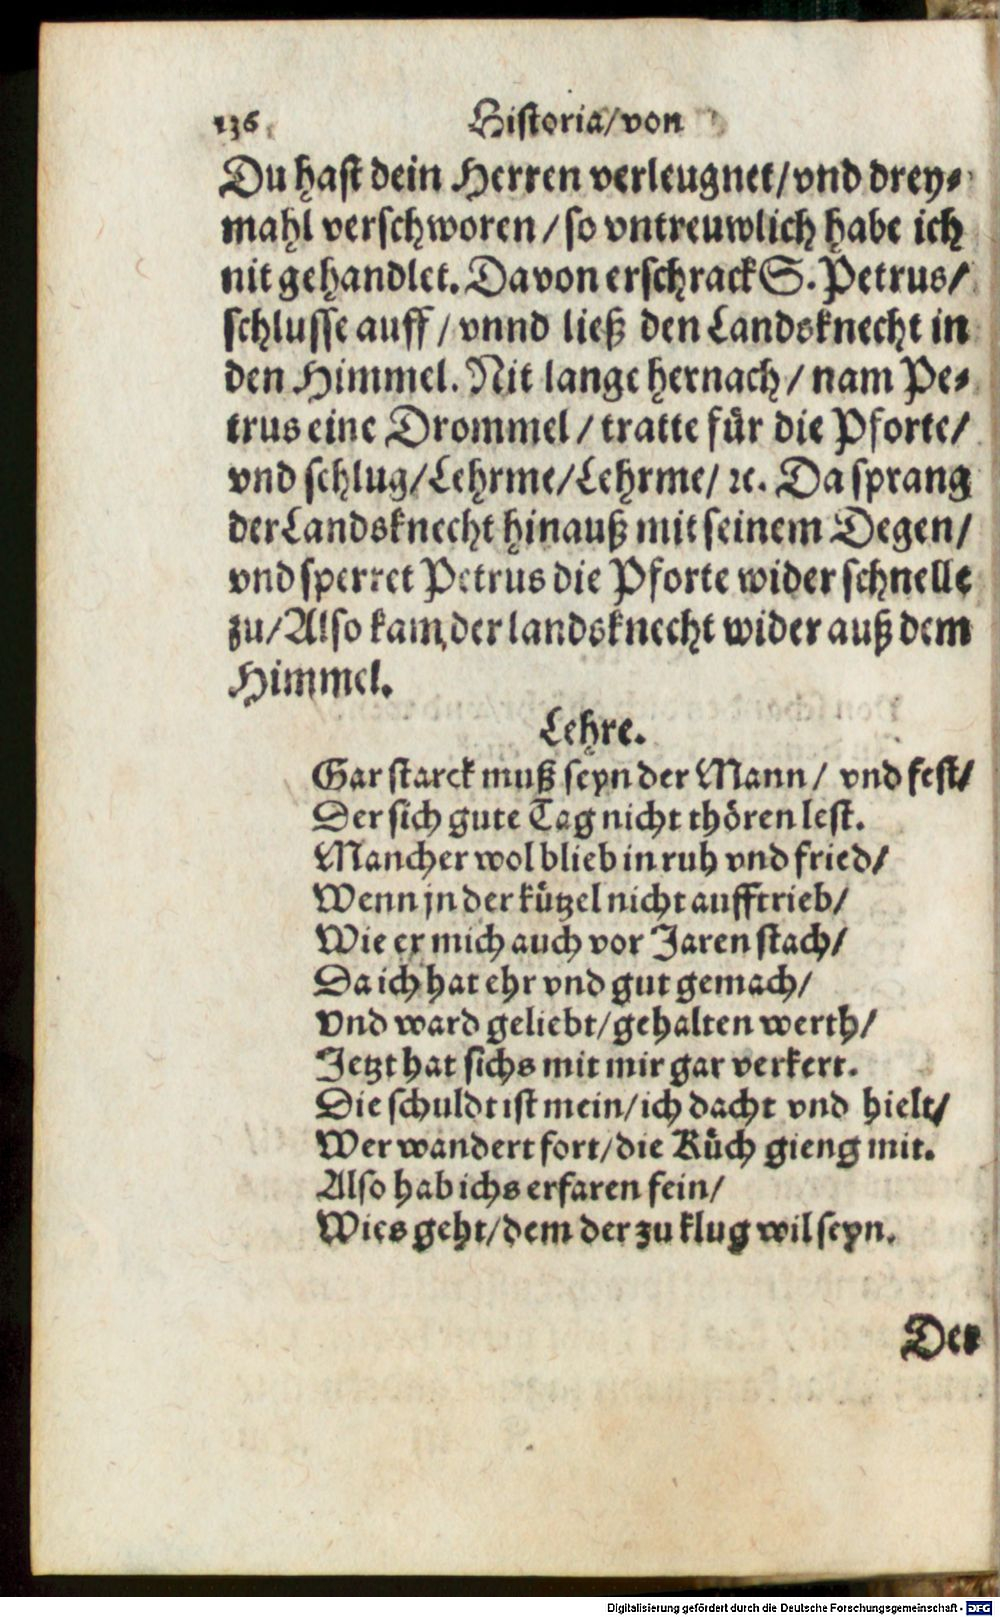 136 Historia/von
Du hast dein Herren verleugnet/vnd drey⸗
mahl verschworen/so vntreuwlich habe ich
nit gehandlet. Davon erschrack S. Petrus/
schlusse auff/vnnd ließ den Landsknecht in
den Himmel. Nit lange hernach/nam Pe⸗
trus eine Drommel/tratte für die Pforte/
vnd schlug/Lehrme/Lehrme/ꝛc. Da sprang
der Landsknecht hinauß mit seinem Degen/
vnd sperret Petrus die Pforte wider schnelle
zu/Also kam der landsknecht wider auß dem
Himmel.
Lehre.
Gar starck muß seyn der Mann/ vnd fest/
Der sich gute Tag nicht thören lest.
Mancher wol blieb in ruh vnd fried/
Wenn jn der kützel nicht aufftrieb/
Wie er mich auch vor Jaren stach/
Da ich hat ehr vnd gut gemach/
Vnd ward geliebt/gehalten werth/
Jetzt hat sichs mit mir gar verkert.
Die schuldt ist mein/ich dacht vnd hielt/
Wer wandert fort/die Küch gieng mit.
Also hab ichs erfaren fein/
Wies geht/dem der zu klug wil seyn.
Der
Digitalisierung gefördert durch die Deutsche Forschungsgemeinschaft - DFG